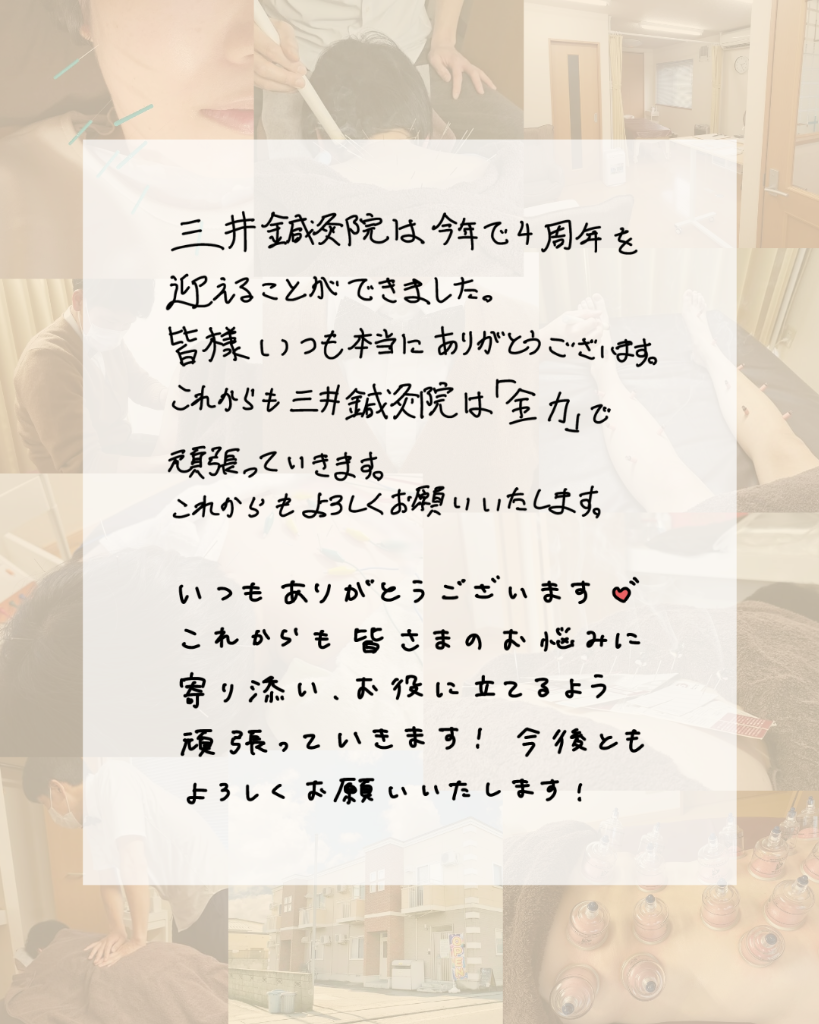 三井鍼灸院は今年で4周年を
迎えることができました。
皆様いつも本当にありがとうございます。
これからも三井鍼灸院は「全力」で
頑張っていきます。
これからもよろしくお願いいたします。
いつもありがとうございます❤
これからも皆さまのお悩みに
寄り添い、お役に立てるよう
頑張っていきます！今後とも
よろしくお願いいたします！